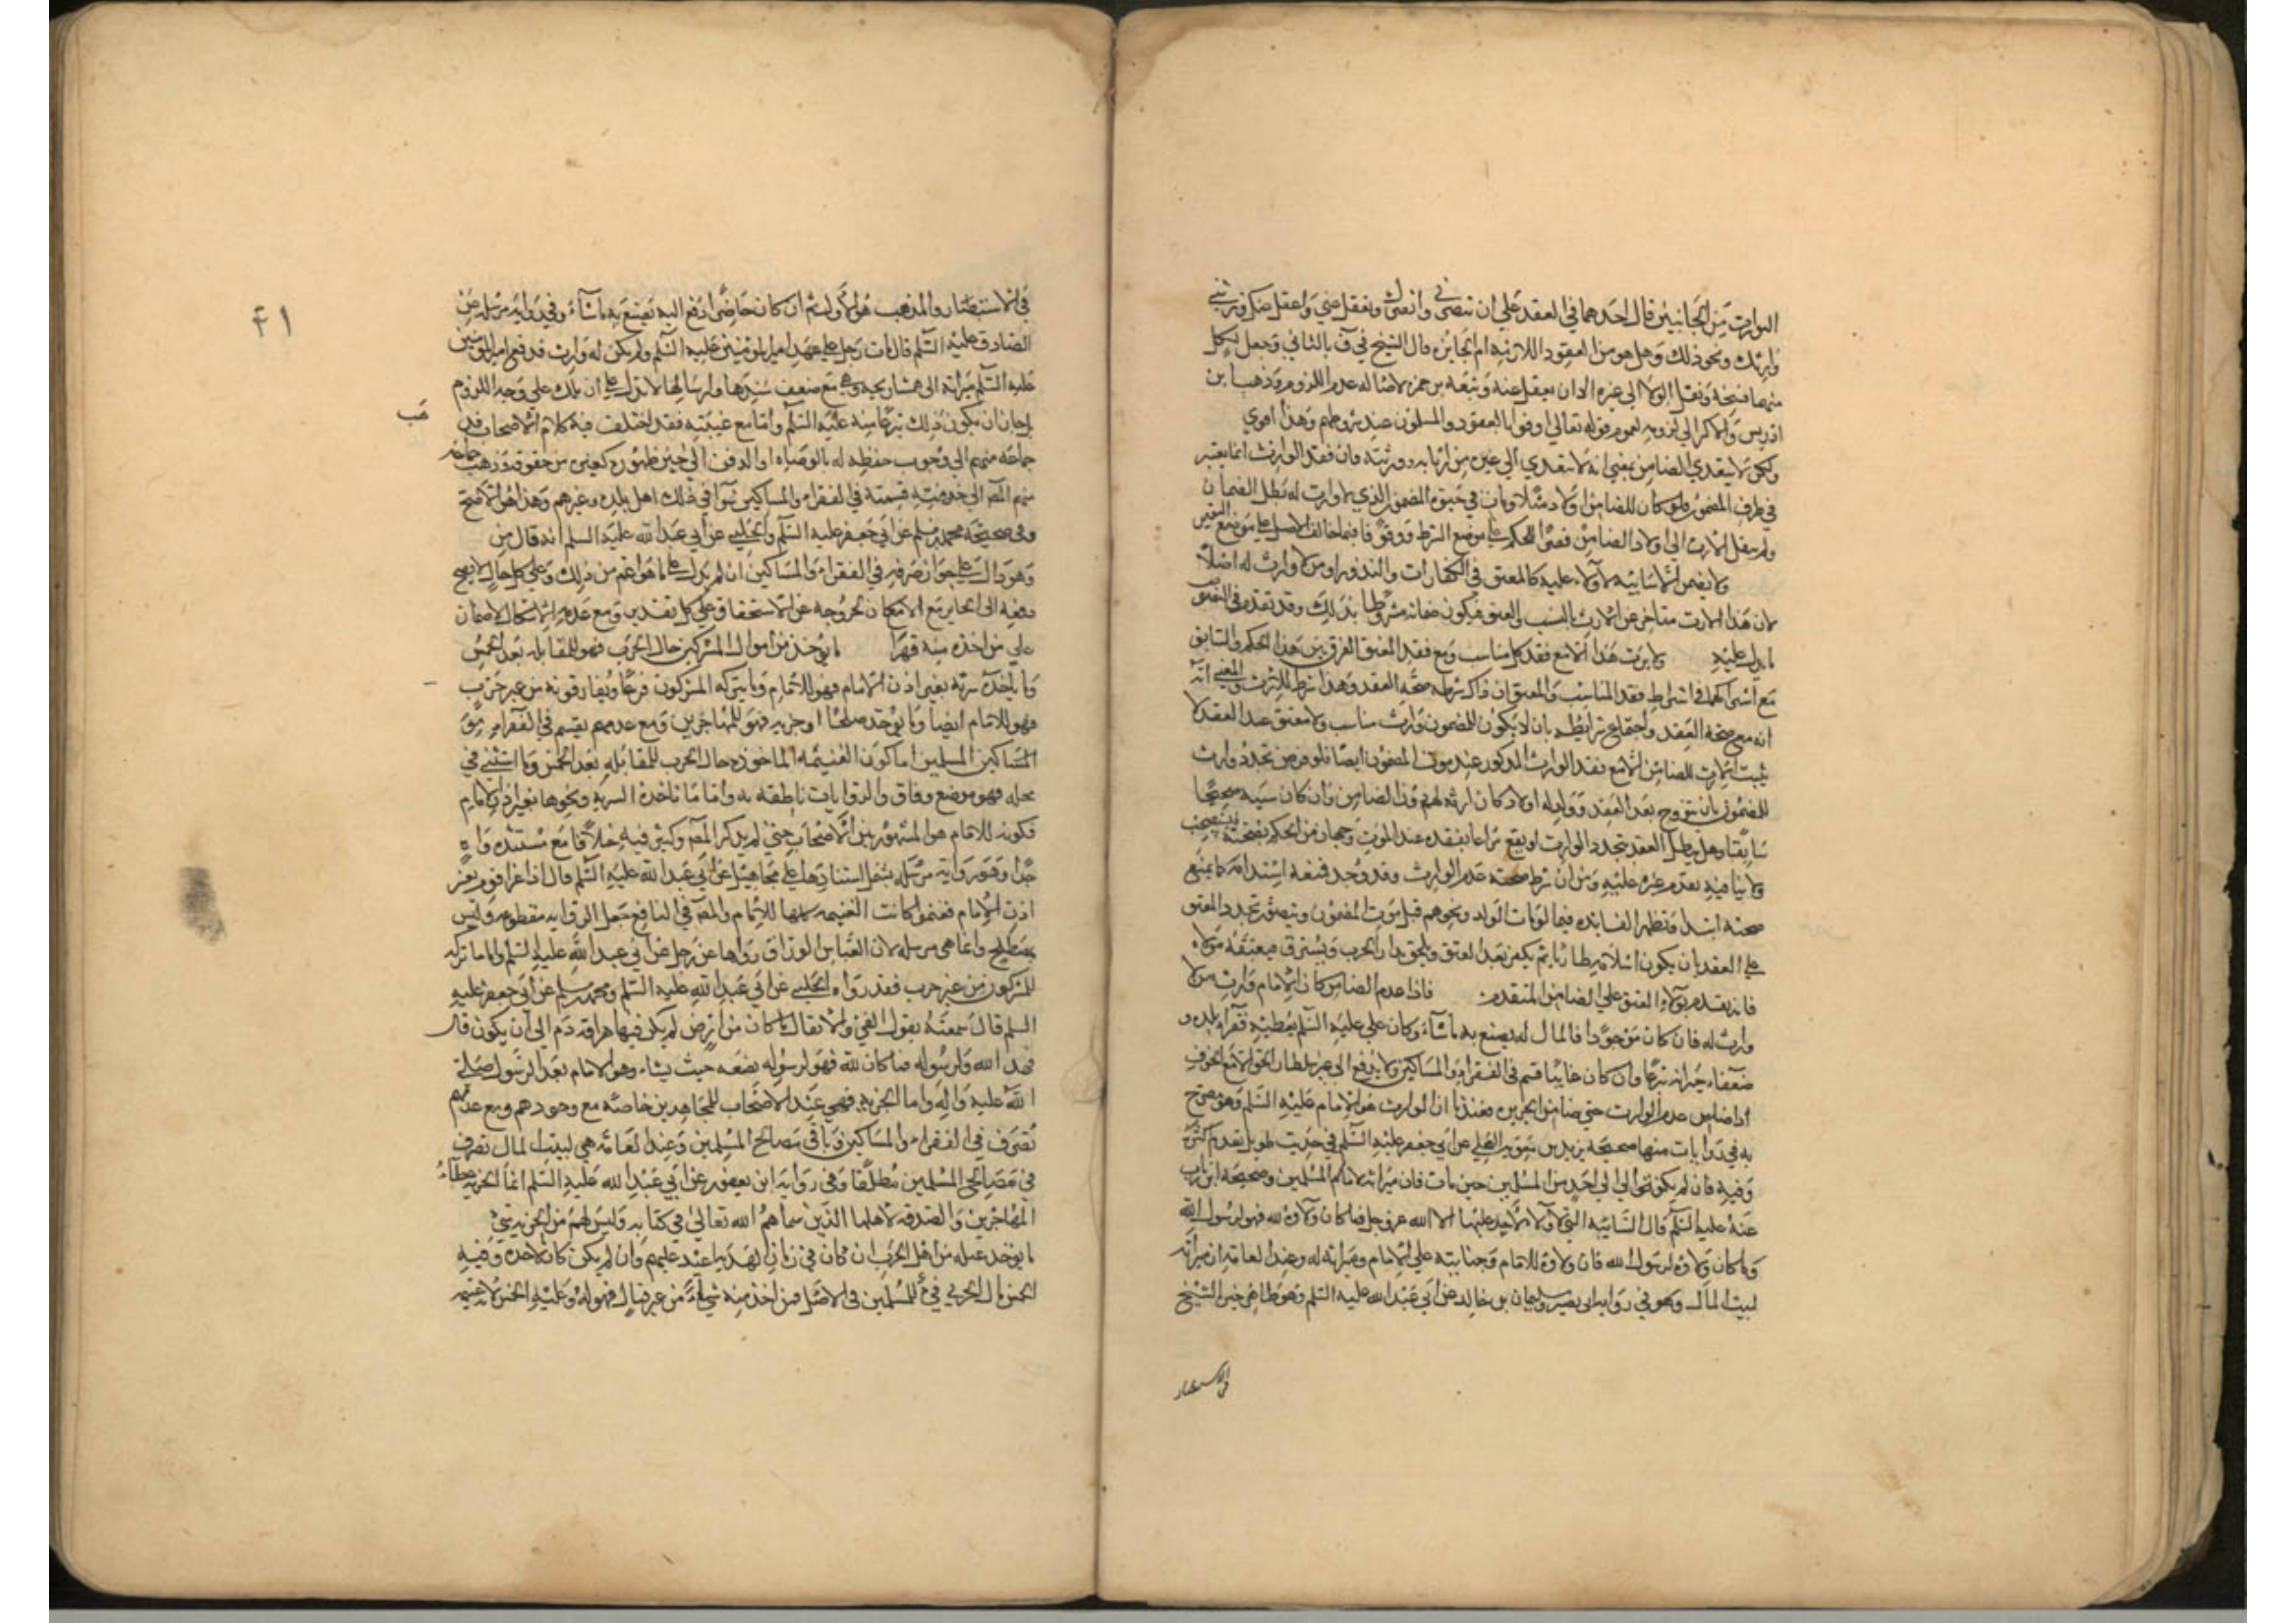 التوارث من الجانبين قال احدهما في العقد علي ان تنصرني وانصرك وتعقل عني واعقل عنك وترثني
وارثك ونحو ذلك وهل هو من العقود اللازمة ام الجايزة قال الشيخ في ف بالثاني وجعل لكل
منهما فسخه ونقل الولا الي غيره الا ان يعقل عنه وتبعه بن حمزه لاصاله عدم اللزوم وذهب ابن
ادريس والاكثر الي لزومه لعموم قوله تعالي اوفوا بالعقود والمسلمون عند شروطهم وهذا اقوي
ولكن لا يتعدي الضامن بمعني انه لا يتعدي الي غيره من اقاربه وورثته وان فقد الوارث انما يعتبر
في طرف المضمون فلو كان للضامن اولاد مثلا ومات في حيوة المضمون الذي لا وارث له بطل الضمان
ولم ينتقل الارث الي اولاد الضامن قصرا للحكم علي موضع الشرط ووقوفا فيما خالف الاصل علي موضع اليقين
ولا يضمن الا سائبة لا ولاء عليه كالمعتق في الكفارات والنذور او من لا وارث له اصلا
لان هذا الارث متاخر عن الارث بالنسب والعتق فيكون ضمانه مشروطا بذلك وقد تقدم في العتق
ما يدل عليه ولا يرث هذا الا مع فقد كل مناسب ومع فقد المعتق الفرق بين هذا الحكم والسابق
مع اشتراكهما في اشتراط فقد المناسب والمعتق ان ذاك شرط صحة العقد وهذا شرط للارث والمعني انه
انه مع صحة العقد واجتماع شرائطه بان لا يكون للمضمون وارث مناسب ولا معتق عند العقد لا
يثبت الارث للضامن الا مع فقد الوارث المذكور عند موت المضمون ايضا فلو فرض تجدد وارث
للمضمون بان تزوج بعد العقد وولد له اولاد كان ارثه لهم دون الضامن وان كان سببه صحيحا
سابقا وهل يبطل العقد بتجدد الوارث او يقع مراعا بفقده عند الموت وجهان من الحكم بصحته فيستصحب
ولا ينافيه تقدم غيره عليه ومن ان شرط صحته عدم الوارث وقد وجد فمنعه استدامة كما يمنع
صحته ابتداء وتظهر الفايده فيما لو مات الولد ونحوهم قبل موت المضمون ويتصور تجدد المعتق
علي العقد بان يكون اسلامه طارئا ثم يكفر بعد العتق ويلحق دار الحرب ويسترق فيعتقه مولاه
فانه يقدم بولاء العتق علي الضامن المتقدم فاذا عدم الضامن كان الامام وارث من لا
وارث له فان كان موجودا فالمال له يصنع به ما شاء وكان علي عليه السلم يعطيه فقراء بلده و
ضعفاء جيرانه تبرعا وان كان غايبا قسم في الفقراء والمساكين ولا يدفع الي غير سلطان الحق الا مع الخوف
اذا ضامن عدم الوارث حتي ضامن الجريره فعندنا ان الوارث هو الامام عليه السلم وهو مصرح
به في روايات منها صحيحة بريد بن معوية العجلي عن ابي جعفر عليه السلم في حديث طويل تقدم اكثره
وفيه فان لم يكن توالي الي احد من المسلمين حين مات فان ميراثه لامام المسلمين وصحيحة ابن رياب
عنه عليه السلم قال السائبة التي لا ولاء لاحد عليها الا الله عز وجل فما كان ولاؤه لله فهو لرسول الله
وما كان ولاؤه لرسول الله فان ولاؤه للامام وجنايته علي الامام وميراثه له وعند العامة ان ميراثه
لبيت المال وهو في رواية ابي بصير وسليمان بن خالد عن ابي عبد الله عليه السلم وهو ظاهر خيرة الشيخ
في الاستبصار
في الاستبصار والمذهب هو الاول ثم ان كان حاضرا دفع اليه يصنع به ما شاء وفي رواية مرسلة عن
الصادق عليه السلم قال مات رجل علي عهد امير المومنين عليه السلم ولم يكن له وارث فدفع امير المومنين
عليه السلم ميراثه الي همشاريجه وهي مع ضعف سندها وارسالها لا تدل علي ان ذلك علي وجه اللزوم
لجاز ان يكون ذلك تبرعا منه عليه السلم واما مع غيبته فقد اختلف فيه كلام الاصحاب فذهب
جماعة منهم الي وجوب حفظه له بالوصاة او الدفن الي حين ظهوره كغيره من حقوقه وذهب جماعة
منهم المص الي جواز قسمته في الفقراء والمساكين سواء في ذلك اهل بلده وغيرهم وهذا هو الاصح
وفي صحيحة محمد بن مسلم عن ابي جعفر عليه السلم والحلبي عن ابي عبد الله عليه السلم انه قال من
وهو دال علي جواز صرفه في الفقراء والمساكين ان لم يدل علي ما هو اعم من ذلك وعلي كل حال لا يصح
دفعه الي الجاير مع الامكان لخروجه عن الاستحقاق علي كل تقدير ومع عدم الامكان لا ضمان
علي من اخذه منه قهرا ما يؤخذ من اموال المشركين حال الحرب فهو للمقاتله بعد الخمس
وما ياخذه سرية بغير اذن الامام فهو للامام وما يتركه المشركون فزعا ويفارقونه من غير حرب
فهو للامام ايضا وما يؤخذ صلحا او جزيه فهو للمهاجرين ومع عدمهم يقسم في الفقراء من
المساكين المسلمين اما كون الغنيمه الماخوذه حال الحرب للمقاتله بعد الخمس وما استثني في
محله فهو موضع وفاق والروايات ناطقه به واما ما تاخذه السرية ونحوها بغير اذن الامام
فكونه للامام هو المشهور بين الاصحاب حتي لم يذكر المص وكثير فيه خلافا مع مستنده واه
جدا وهو رواية مرسله مشتمل اسنادها علي مجاهيل عن ابي عبد الله عليه السلم قال اذا غزا قوم بغير
اذن الامام فغنموا كانت الغنيمه كلها للامام والمص في النافع جعل الرواية مقطوعه وليس
بمصطلح وانما هي مرسله لان العباس الوراق رواها عن رجل عن ابي عبد الله عليه السلم واما ما تركه
المشركون من غير حرب فقد رواه الحلبي عن ابي عبد الله عليه السلم ومحمد بن مسلم عن ابي جعفر عليه
السلم قال سمعته يقول الفئ والانفال ما كان من ارض لم يكن فيها هراقة دم الي ان يكون قال
فهذا الله ولرسوله فما كان لله فهو لرسوله يضعه حيث يشاء وهو للامام بعد الرسول صلي
الله عليه واله واما الجزيه فهي عند الاصحاب للمجاهدين خاصة مع وجودهم ومع عدمهم
تصرف في الفقراء والمساكين وباقي مصالح المسلمين وعند العامه هي لبيت المال تصرف
في مصالح المسلمين مطلقا وفي رواية ابن يعفور عن ابي عبد الله عليه السلم انما الجزيه عطاء
المهاجرين والصدقه لاهلها الذين سماهم الله تعالي في كتابه وليس لهم من الجزيه شئ
ما يؤخذ غيلة من اهل الحرب ان كان في زمان الهدنه اعيد عليهم وان لم يكن كان لاخذه وفيه
الخمس مال الحربي فئ للمسلمين في الاصل فمن اخذ منه شيئا من غير قتال فهو له وعليه الخمس لانه غنيمه